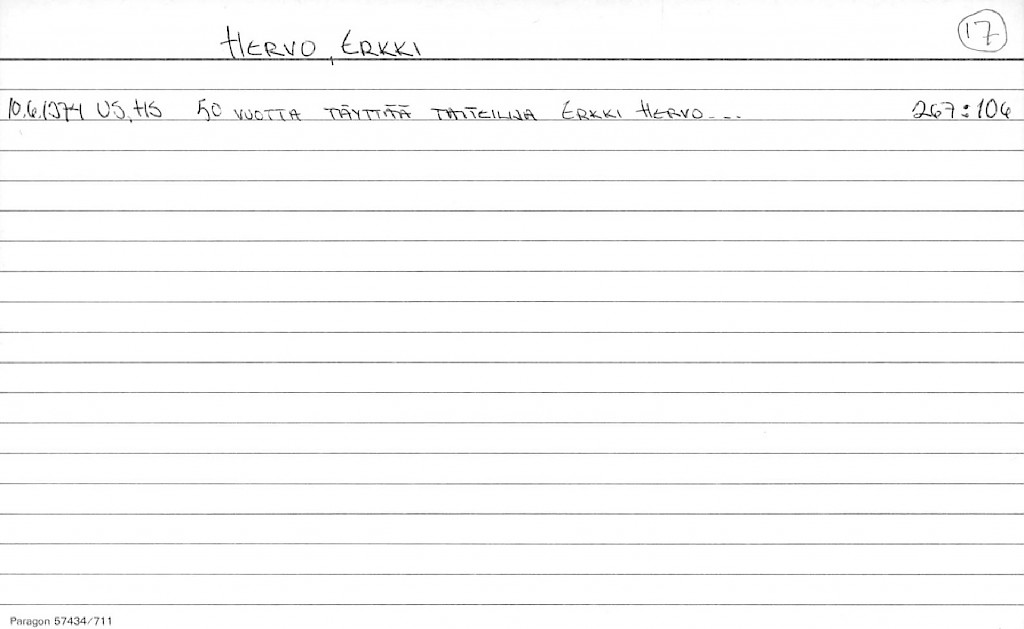 17
HERVO, ERKKI
10.6.1974 US, HS 50 VUOTTA TÄYTTÄÄ TAITEILIJA ERKKI HERVO... 267:106
Paragon 57434/711